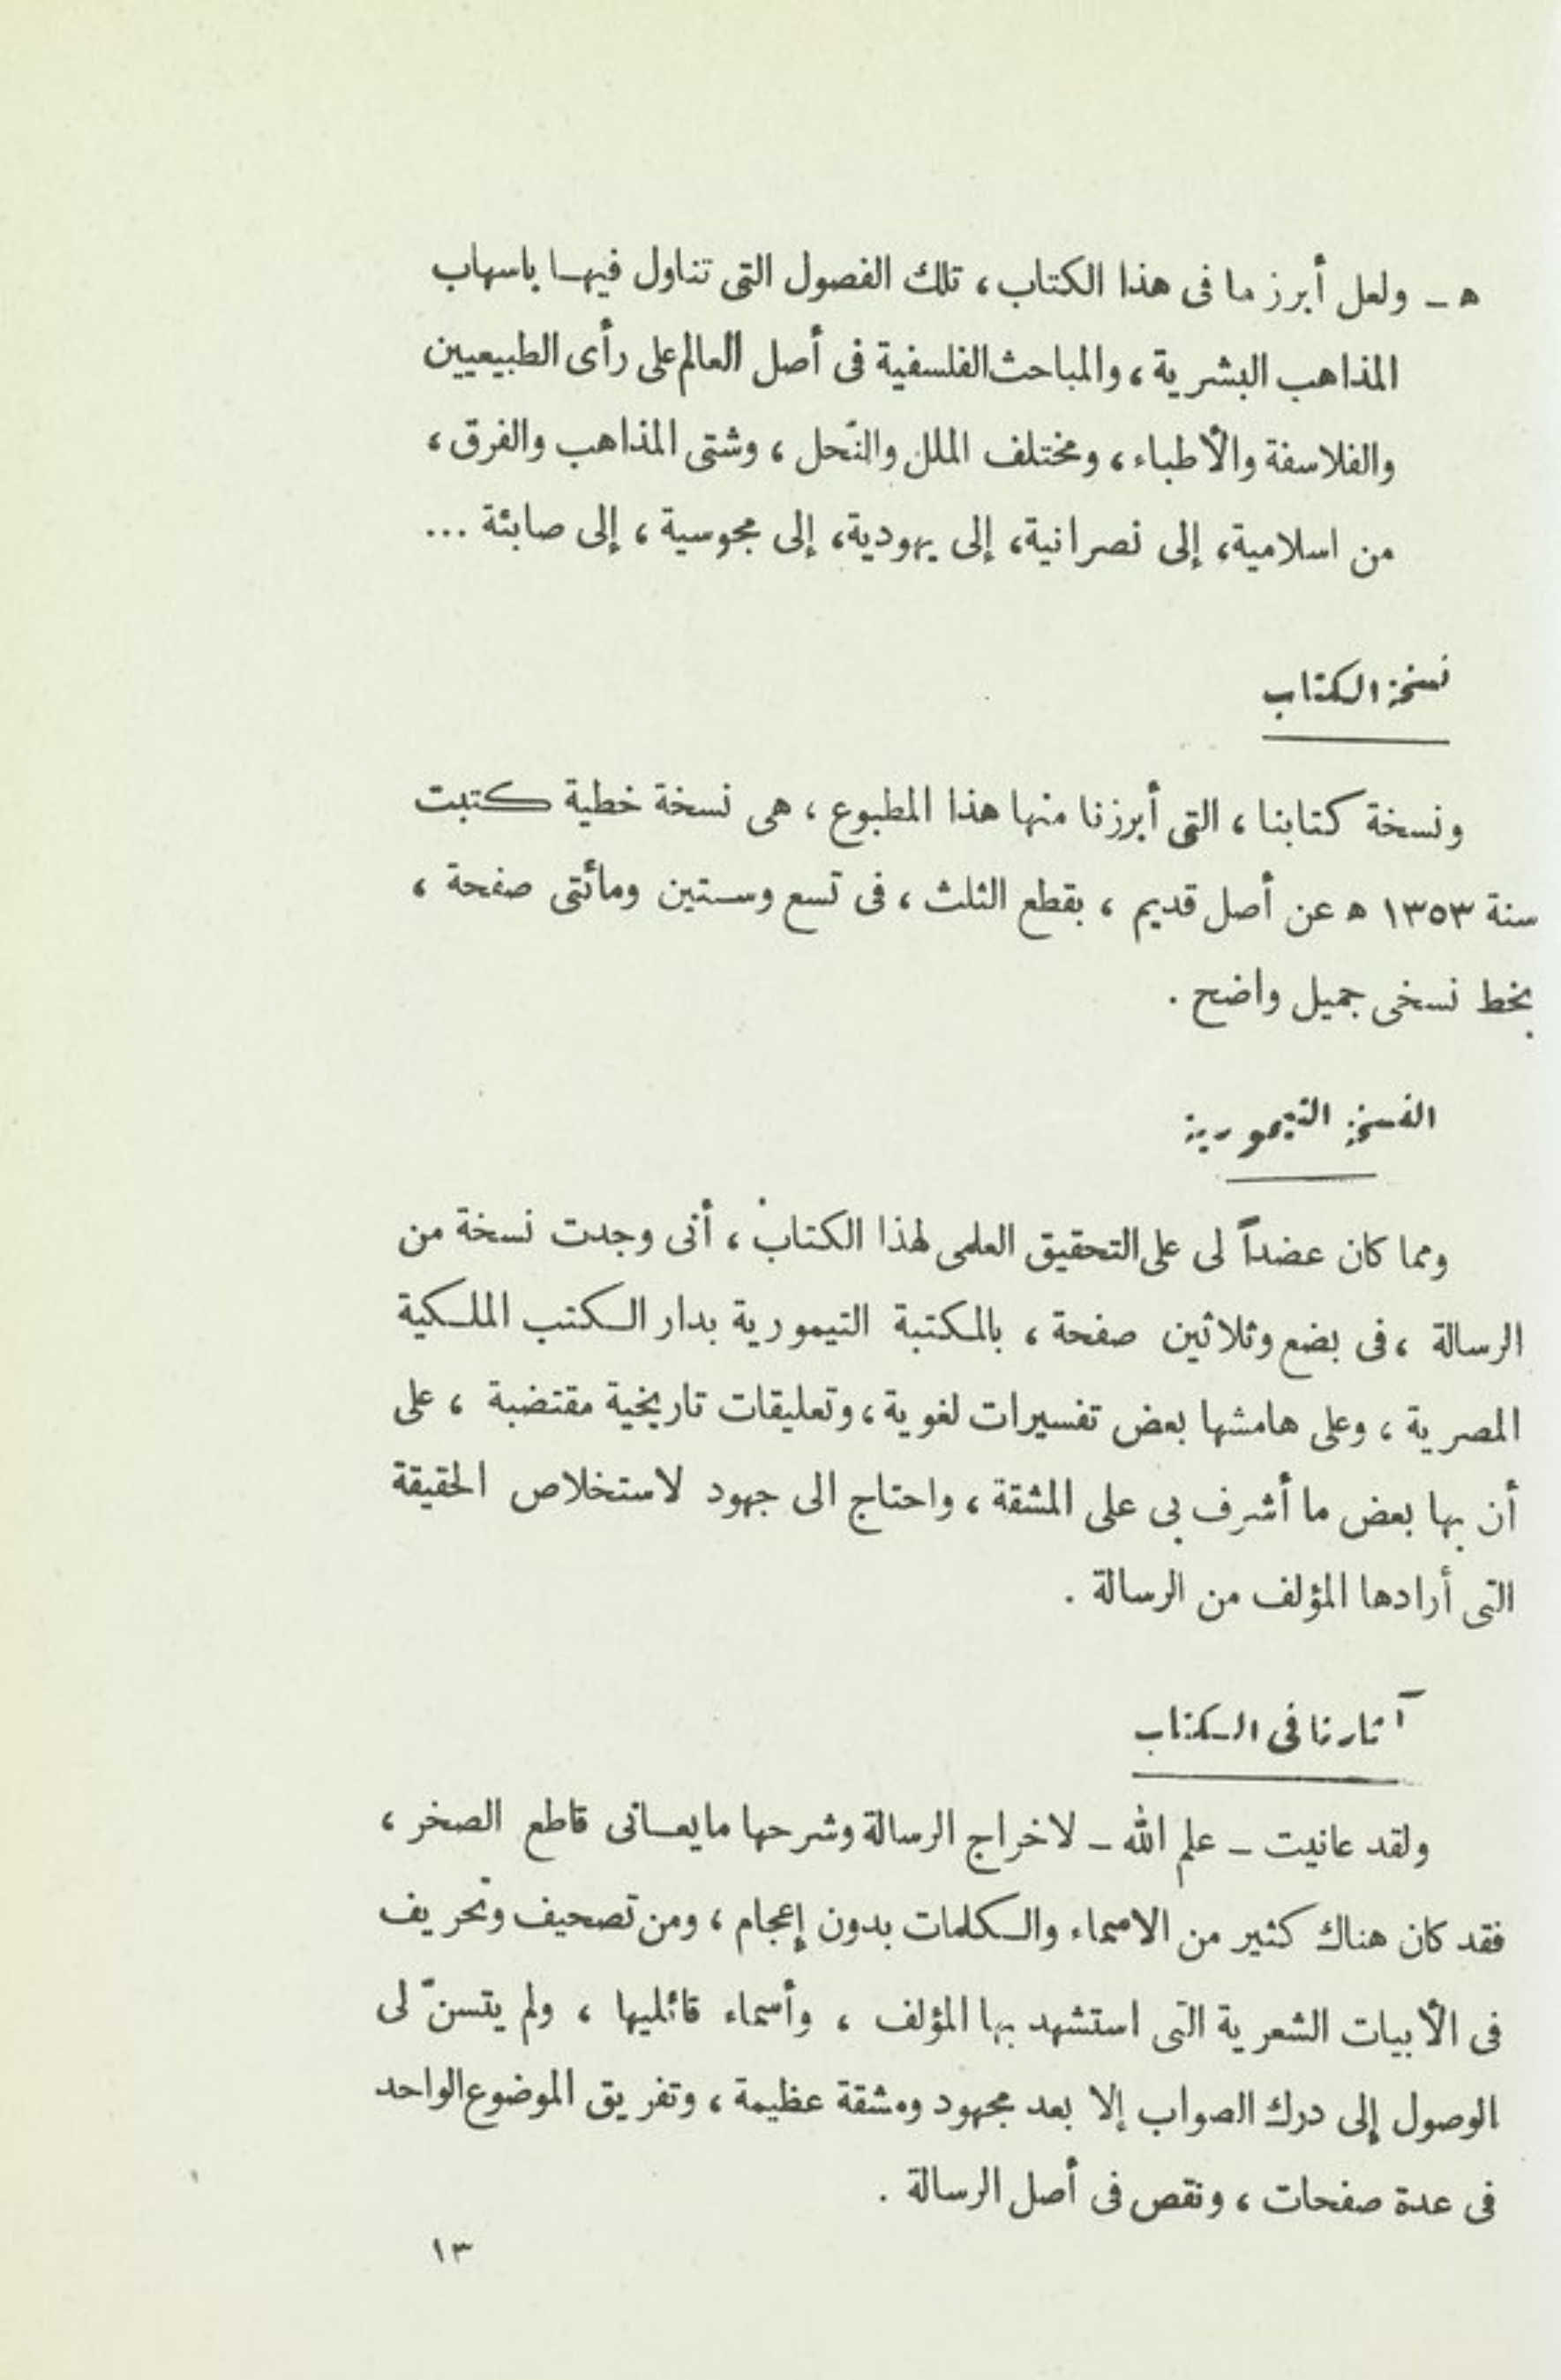 ه ـ ولعل أبرز ما فى هذا الكتاب، تلك الفصول التى تناول فيها باسهاب
المذاهب البشرية، والمباحث الفلسفية فى أصل العالم على رأى الطبيعيين
والفلاسفة والأطباء، ومختلف الملل والنّحل، وشتى المذاهب والفرق،
من اسلامية، إلى نصرانية، إلى يهودية، إلى مجوسية، إلى صابئة ...
نسخة الكتاب
ونسخة كتابنا، التى أبرزنا منها هذا المطبوع، هى نسخة خطية كتبت
سنة ١٣٥٣ ه عن أصل قديم، بقطع الثلث، فى تسع وستين ومائتى صفحة،
بخط نسخى جميل واضح.
النسخة التيمورية
ومما كان عضداً لى على التحقيق العلمى لهذا الكتاب، أنى وجدت نسخة من
الرسالة، فى بضع وثلاثين صفحة، بالمكتبة التيمورية بدار الكتب الملكية
المصرية، وعلى هامشها بعض تفسيرات لغوية، وتعليقات تاريخية مقتضبة، على
أن بها بعض ما أشرف بى على المشقة، واحتاج الى جهود لاستخلاص الحقيقة
التى أرادها المؤلف من الرسالة.
آثارنا فى الكتاب
ولقد عانيت ـ علم الله ـ لاخراج الرسالة وشرحها ما يعانى قاطع الصخر،
فقد كان هناك كثير من الاسماء والكلمات بدون إعجام، ومن تصحيف وتحريف
فى الأبيات الشعرية التى استشهد بها المؤلف، وأسماء قائليها، ولم يتسنّ لى
الوصول إلى درك الصواب إلا بعد مجهود ومشقة عظيمة، وتفريق الموضوع الواحد
فى عدة صفحات، ونقص فى أصل الرسالة.
١٣